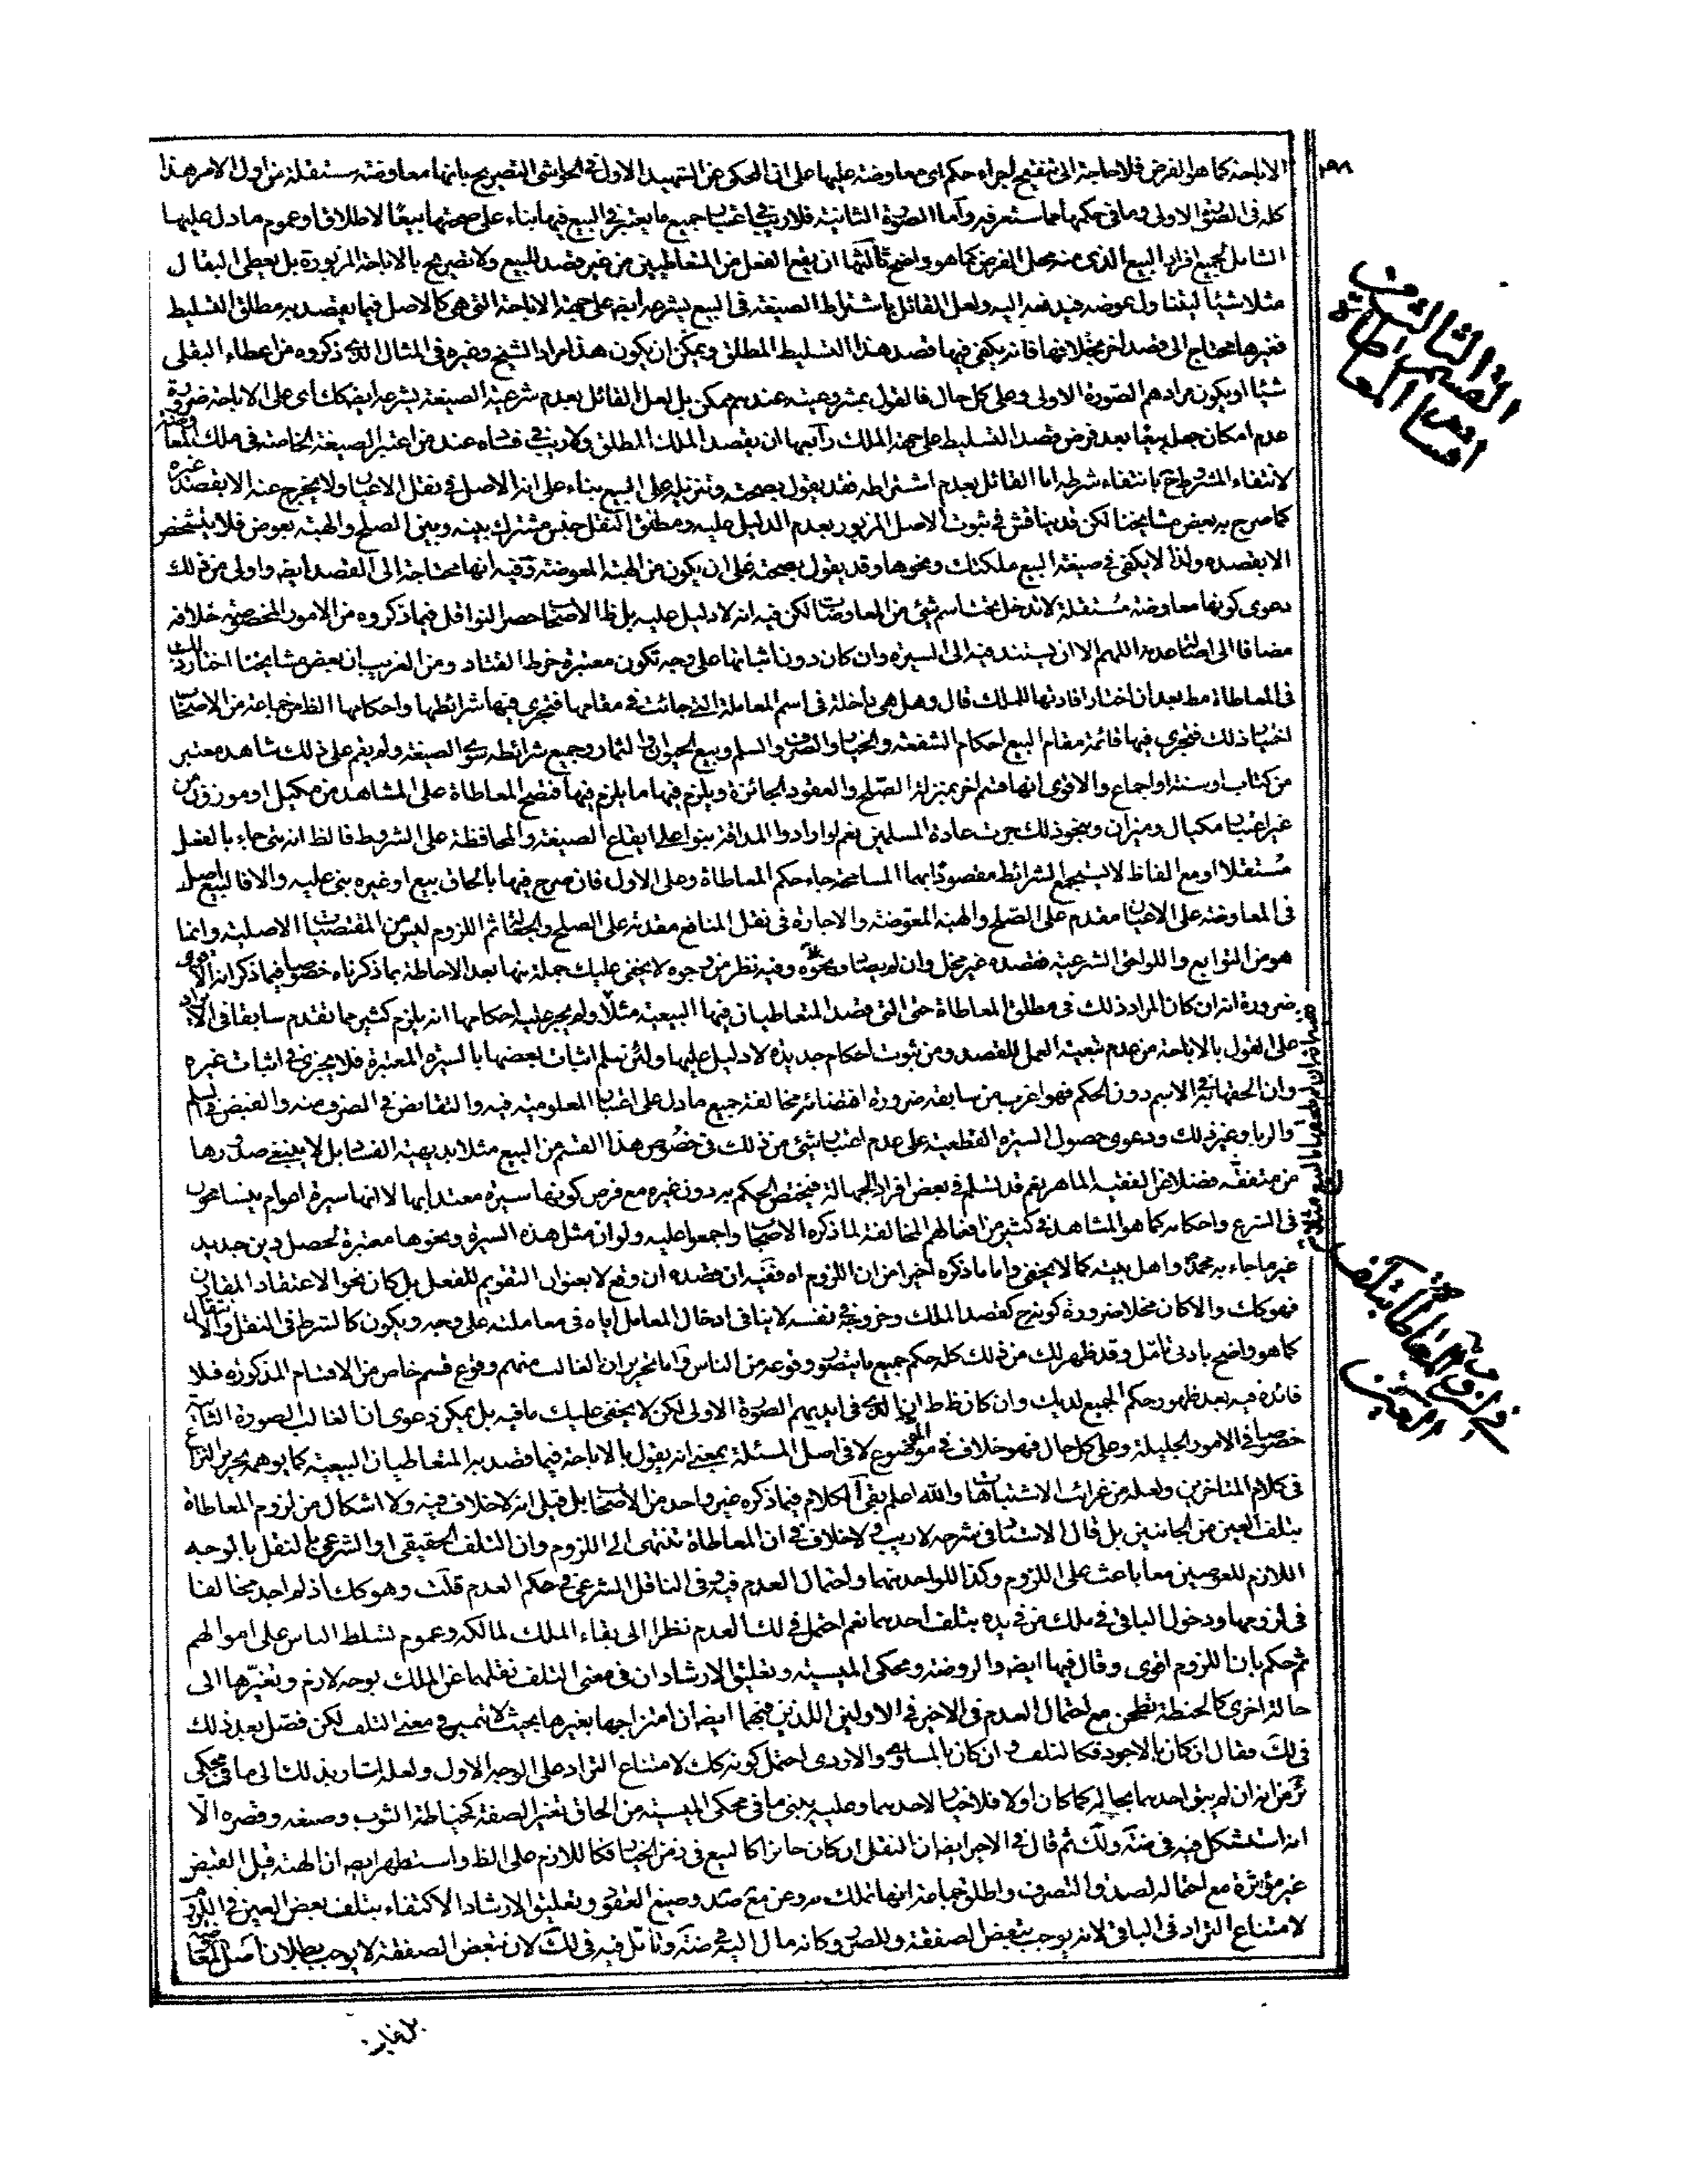 الاباحة كما هو الفرض فلا حاجة الى تنقيح اجراء حكم اى معاوضة عليها على ان المحكى عن الشهيد الاول فى الحواشى التصريح بانها معاوضة مستقلة من اول الامر هذا
كله فى الصورة الاولى وما فى حكمها مما ستعرفه وأما الصورة الثانية فلا ريب فى اعتبار جميع ما يعتبر فى البيع فيها بناء على صحتها بيعًا لاطلاق او عموم ما دل عليها
الشامل لجميع افراد البيع الذى منه محل الفرض كما هو واضح ثالثها ان يقع الفعل من المتعاطيين من غير قصد للبيع ولا تصريح بالاباحة المزبورة بل يعطى البقال
مثلا شيئا ليتناول عوضه فيدفعه اليه ولعل القائل باشتراط الصيغة فى البيع يشرعه ايضا على جهة الاباحة التى هى كالاصل فيما يقصد به مطلق التسليط
فغيرها محتاج الى قصد اخر بخلافها فانه يكفى فيها قصد هذا التسليط المطلق ويمكن ان يكون هذا مراد الشيخ وغيره فى المثال الذى ذكروه من اعطاء البقلى
شيئا او يكون مرادهم الصورة الاولى وعلى كل حال فالقول بمشروعيته عندهم ممكن بل لعل القائل بعدم شرعية الصيغة يشرعه ايضا كك اى على الاباحة ضرورة
عدم امكان جعله بيعًا بعد فرض قصد التسليط على جهة الملك رابعها ان يقصد الملك المطلق ولا ريب فى فساده عند من اعتبر الصيغة الخاصة فى ملك المعاوضة
لانتفاء المشروط ح بانتفاء شرطه اما القائل بعدم اشتراطه فقد يقول بصحته وتنزيله على البيع بناء على انه الاصل فى نقل الاعيان ولا يخرج عنه الا بقصد غيره
كما صرح به بعض مشايخنا لكن قد يناقش فى ثبوت الاصل المزبور بعدم الدليل عليه ومطلق النقل جنس مشترك بينه وبين الصلح والهبة بعوض فلا يتشخص
الا بقصده ولذا لا يكفى فى صيغة البيع ملكتك ونحوها وقد يقول بصحته على ان يكون من الهبة المعوضة وفيه انها محتاجة الى القصد ايضا واولى من ذلك
دعوى كونها معاوضة مستقلة لا تدخل تحت اسم شئ من المعاوضات لكن فيه انه لا دليل عليه بل ظ الاصحاب حصر النواقل فيما ذكروه من الامور المخصوصة خلافه
مضافا الى اصالة عدمه اللهم الا ان يستند فيه الى السيرة وان كان دون اثباتها على وجه تكون معتبرة خرط القتاد ومن الغريب ان بعض مشايخنا اختار ذلك
فى المعاطاة مط بعد ان اختار افادتها للملك قال وهل هى داخلة فى اسم المعاملة التى جائت فى مقامها فتجرى فيها شرائطها واحكامها الظ من جماعة من الاصحاب
اختيار ذلك فتجرى فيها قائمة مقام البيع احكام الشفعة والخيار والصرف والسلم وبيع الحيوان والثمار وجميع شرائطه سوى الصيغة ولم يقم على ذلك شاهد معتبر
من كتاب او سنة او اجماع والاقوى انها قسم اخر بمنزلة الصلح والعقود الجائزة ويلزم فيها ما يلزم فيها فتصح المعاطاة على المشاهد من مكيل او موزون من
غير اعتبار مكيال وميزان وبنحو ذلك جرت عادة المسلمين نعم لو ارادوا المداقة بنوا على ايقاع الصيغة والمحافظة على الشروط فالظ انه متى جاء بالفعل
مستقلا او مع الفاظ لا تستجمع الشرائط مقصودًا بهما المسامحة جاء حكم المعاطاة وعلى الاول فان صرح فيها بالحاق بيع او غيره بنى عليه والا فالبيع اصل
فى المعاوضة على الاعيان مقدم على الصلح والهبة المعوضة والاجارة فى نقل المنافع مقدمة على الصلح والجعالة ثم اللزوم ليس من المقتضيات الاصلية وانما
هو من التوابع واللواحق الشرعية فقصده غير مخل وان لم يصادفوه وفيه نظر من وجوه لا يخفى عليك جملة منها بعد الاحاطة بما ذكرناه خصوصا فيما ذكر انه الاقوى
ضرورة انه ان كان المراد ذلك فى مطلق المعاطاة حتى التى قصد المتعاطيان فيها البيعية مثلا ولم يجر عليه احكامها انه يلزم كثير مما تقدم سابقا فى الايراد
على القول بالاباحة من عدم تبعية العمل للقصد ومن ثبوت احكام جديدة لا دليل عليها ولئن سلم اثبات بعضها بالسيرة المعتبرة فلا يجزى فى اثبات غيره
وان الحقها به فى الاسم دون الحكم فهو اغرب من سابقه ضرورة اقتضائه مخالفة جميع ما دل على اعتبار المعلومية فيه والتقابض فى الصرف منه والقبض فى السلم
والربا وغير ذلك ودعوى حصول السيرة القطعية على عدم اعتبار شئ من ذلك فى خصوص هذا القسم من البيع مثلا بديهية الفساد بل لا ينبغى صدورها
من متفقه فضلا عن الفقيه الماهر نعم قد تسلم فى بعض افراد الجهالة فيختص الحكم به دون غيره مع فرض كونها سيرة معتدا بها لا انها سيرة اقوام يتسامحون
فى الشرع واحكامه كما هو المشاهد فى كثير من افعالهم المخالفة لما ذكره الاصحاب واجمعوا عليه ولو ان مثل هذه السيرة ونحوها معتبرة لحصل دين جديد
غير ما جاء به محمد واهل بيته كما لا يخفى واما ما ذكره اخيرا من ان اللزوم اه ففيه ان قصده ان وقع لا بعنوان التقويم للفعل بل كان نحو الاعتقاد المقارن
فهو كك والا كان مخلا ضرورة كونه ح كقصد الملك وخروجه فى نفسه لا ينافى ادخال المعامل اياه فى معاملته على وجه ويكون كالشرط فى النقل والانتقال
كما هو واضح بادنى تامل وقد ظهر لك من ذلك كله حكم جميع ما يتصور وقوعه من الناس واما تحرير ان الغالب منهم وقوع قسم خاص من الاقسام المذكورة فلا
فائدة فيه بعد ظهور حكم الجميع لديك وان كان ظ ط ان الذى فى ايديهم الصورة الاولى لكن لا يخفى عليك ما فيه بل يمكن دعوى ان الغالب الصورة الثانية
خصوصا فى الامور الجليلة وعلى كل حال فهو خلاف فى الموضوع لا فى اصل المسئلة بمعنى انه يقول بالاباحة فيما قصد به المتعاطيان البيعية كما يوهمه تحرير النزاع
فى كلام المتاخرين ولعله من غرائب الاشتباهات والله اعلم بقى الكلام فيما ذكره غير واحد من الاصحاب بل قيل انه لا خلاف فيه ولا اشكال من لزوم المعاطاة
بتلف العين من الجانبين بل قال الاستاد فى شرحه لا ريب ولا خلاف فى ان المعاطاة تنتهى الى اللزوم وان التلف الحقيقى او الشرعى بالنقل بالوجه
اللازم للعوضين معا باعث على اللزوم وكذا للواحد منهما واحتمال العدم فيه وفى الناقل الشرعى فى حكم العدم قلت وهو كك اذ لم اجد مخالفا
فى لزومها ودخول الباقى فى ملك من فى يده بتلف احدهما نعم احتمل فى لك العدم نظرا الى بقاء الملك لمالكه وعموم تسلط الناس على اموالهم
ثم حكم بان اللزوم اقوى وقال فيها ايضا والروضة ومحكى الميسية وتعليق الارشاد ان فى معنى التلف نقلهما عن الملك بوجه لازم وتغيرها الى
حالة اخرى كالحنطة تطحن مع احتمال العدم فى الاخير فى الاولين اللذين فيهما ايضا ان امتزاجها بغيرها بحيث لا تتميز فى معنى التلف لكن فصل بعد ذلك
فى لك فقال ان كان بالاجود فكالتلف وان كان بالمساوى والاردى احتمل كونه كك لامتناع التراد على الوجه الاول ولعله اشار بذلك الى ما فى محكى
من انه ان لم يبق احدهما بحاله كما كان اولا فلا خيار لاحدهما وعليه يبنى ما فى محكى الميسية من الحاق تغير الصفة كخياطة الثوب وصبغه وقصره الا
انه استشكل فيه فى ضة ولك ثم قال فى الاخير ايضا ان النقل ان كان جائزا كالبيع فى زمن الخيار فكاللازم على الظ واستظهر ايضا ان الهبة قبل القبض
غير مؤثرة مع احتماله لصدق التصرف واطلق جماعة انها تملك به وعن مع صد وصيغ العقود وتعليق الارشاد الاكتفاء بتلف بعض العين فى اللزوم
لامتناع التراد فى الباقى لانه يوجب تبعض الصفقة والضرر وكانه مال اليه فى ضة وتامل فيه فى لك لان تبعض الصفقة لا يوجب بطلان اصل المعاوضة
القسم الثالث من اقسام المعاطاة
فى لزوم المعاطاة بتلف العين